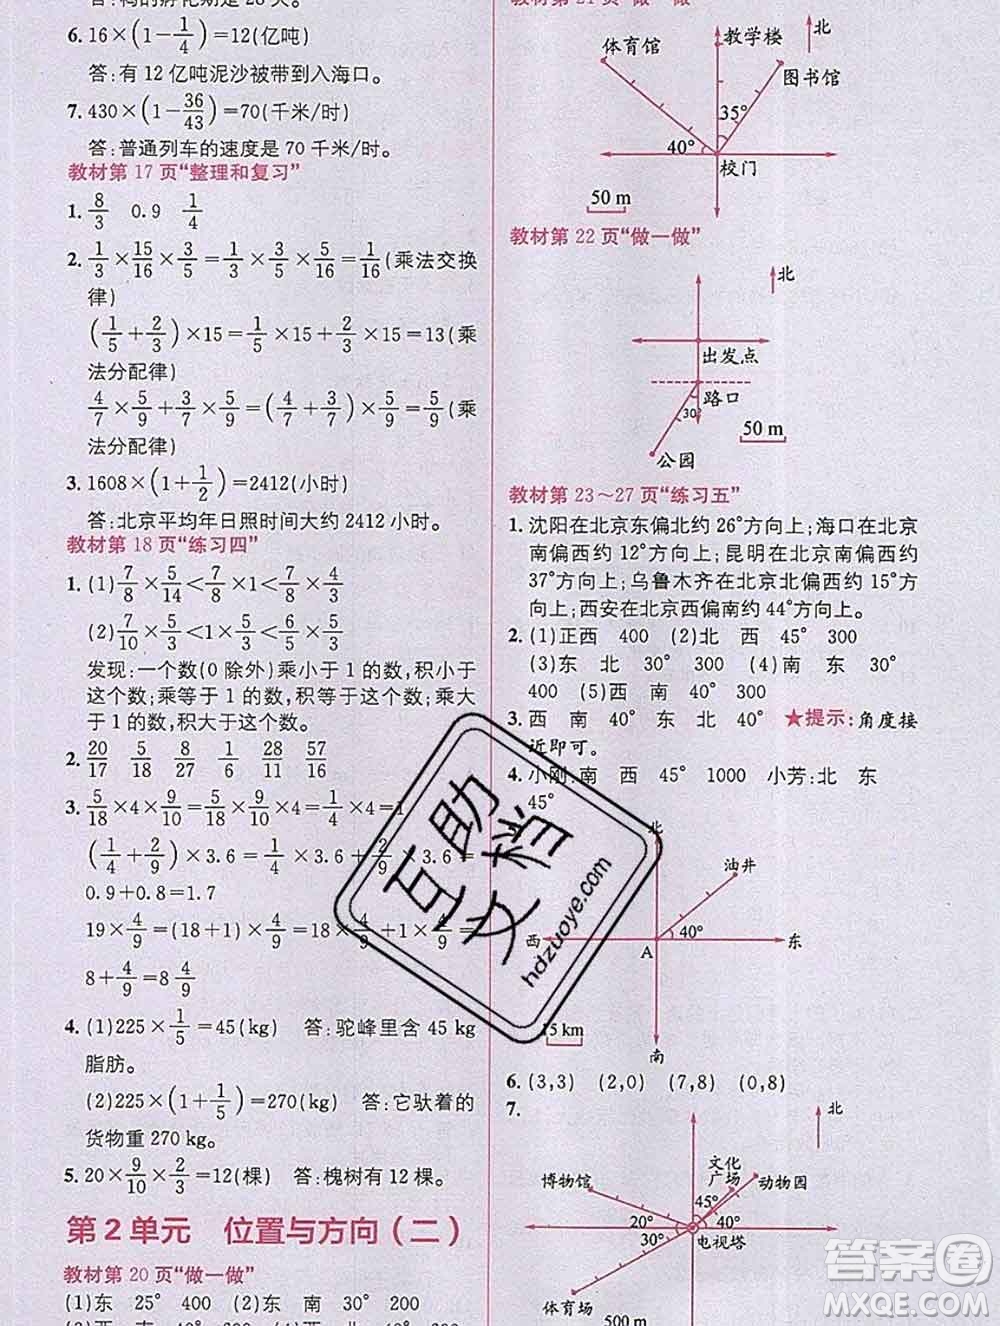 6. 16×(1-1/4)=12(亿吨)
答:有 12 亿吨泥沙被带到入海口。
7. 430×(1-36/43)=70(千米/时)
答:普通列车的速度是 70 千米/时。
教材第 17 页“整理和复习”
1. 8/3 0.9 1/4
2. 1/3×15/16×3/5=1/3×3/5×15/16=3/16(乘法交换
律)
(1/5+2/3)×15=1/5×15+2/3×15=13(乘
法分配律)
4/7×5/9+3/7×5/9=(4/7+3/7)×5/9=5/9(乘法
分配律)
3. 1608×(1+1/2)=2412(小时)
答:北京平均年日照时间大约 2412 小时。
教材第 18 页“练习四”
1. (1)7/8×5/14<7/8×1<7/8×5/3
(2)7/10×5/3<1×5/3<6/5×5/3
发现:一个数(0 除外)乘小于 1 的数,积小于
这个数;乘等于 1 的数,积等于这个数;乘大
于 1 的数,积大于这个数。
2. 20/17 5/18 8/9 1/6 28/11 57/16
3. 5/18×4×9/10=5/18×9/10×4=1/4×4=1
(1/4+2/9)×3.6=1/4×3.6+2/9×3.6=
0.9+0.8=1.7
19×4/9=(18+1)×4/9=18×4/9+1×4/9=
8+4/9=8 4/9
4. (1)225×1/5=45(kg) 答:驼峰里含 45 kg
脂肪。
(2)225×(1+1/5)=270(kg) 答:它驮着的
货物重 270 kg。
5. 20×9/10×2/3=12(棵) 答:槐树有 12 棵。
第 2 单元 位置与方向(二)
教材第 20 页“做一做”
(1)东 25° 400 (2)东 南 30° 200
教材第 21 页“做一做”
体育馆
教学楼
北
图书馆
35°
40°
校门
50 m
教材第 22 页“做一做”
北
出发点
路口
30°
50 m
公园
教材第 23~27 页“练习五”
1. 沈阳在北京东偏北约 26°方向上;海口在北京
南偏西约 12°方向上;昆明在北京南偏西约
37°方向上;乌鲁木齐在北京北偏西约 15°方
向上;西安在北京西偏南约 44°方向上。
2. (1)正西 400 (2)北 西 45° 300
(3)东 北 30° 300 (4)南 东 30°
400 (5)西 南 40° 300
3. 西 南 40° 东 北 40° ★提示:角度接
近即可。
4. 小刚:南 西 45° 1000 小芳:北 东
45°
北
油井
西
40°
东
A
15 km
南
6. (3,3) (2,0) (7,8) (0,8)
7.
北
博物馆
文化
广场
动物园
45°
20°
40°
30°
电视塔
体育场
500 m
互助文档
hdzuoye.com
答案圈
MXQE.COM